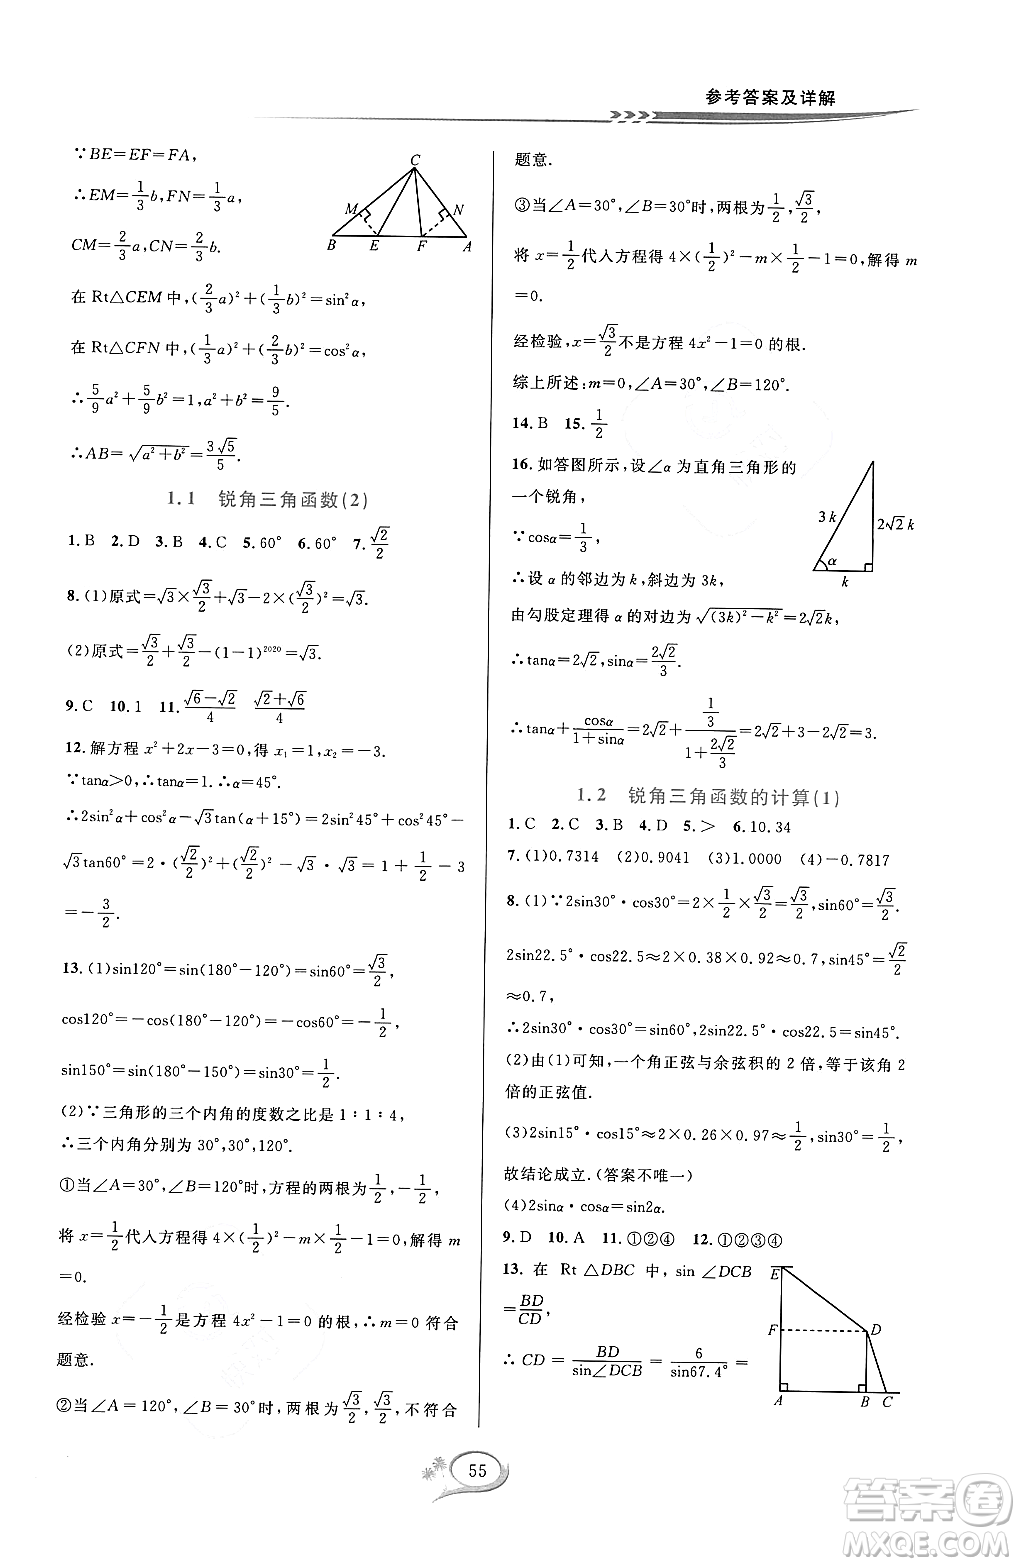 参考答案及详解
∵BE=EF=FA,
∴EM=1/3b,FN=1/3a,
CM=2/3a,CN=2/3b.
在 Rt△CEM 中,(2/3a)²+(1/3b)²=sin²α,
在 Rt△CFN 中,(1/3a)²+(2/3b)²=cos²α,
∴5/9a²+5/9b²=1,a²+b²=9/5.
∴AB=√(a²+b²)=3√5/5.
C
M
N
B E F A
1.1 锐角三角函数(2)
1.B 2.D 3.B 4.C 5.60° 6.60° 7.√2/2
8.(1)原式=√3×√3/2+√3-2×(√3/2)²=√3.
(2)原式=√3/2+√3/2-(1-1)²⁰²⁰=√3.
9.C 10.1 11.(√6-√2)/4 (√2+√6)/4
12.解方程 x²+2x-3=0,得 x₁=1,x₂=-3.
∵tanα>0,∴tanα=1.∴α=45°.
∴2sin²α+cos²α-√3tan(α+15°)=2sin²45°+cos²45°-
√3tan60°=2·(√2/2)²+(√2/2)²-√3·√3=1+1/2-3
=-3/2.
13.(1)sin120°=sin(180°-120°)=sin60°=√3/2,
cos120°=-cos(180°-120°)=-cos60°=-1/2,
sin150°=sin(180°-150°)=sin30°=1/2.
(2)∵三角形的三个内角的度数之比是 1∶1∶4,
∴三个内角分别为 30°,30°,120°.
①当∠A=30°,∠B=120°时,方程的两根为1/2,-1/2,
将 x=1/2代人方程得 4×(1/2)²-m×1/2-1=0,解得 m
=0.
经检验 x=-1/2是方程 4x²-1=0 的根,∴m=0 符合
题意.
②当∠A=120°,∠B=30°时,两根为√3/2,√3/2,不符合
题意.
③当∠A=30°,∠B=30°时,两根为1/2,√3/2,
将 x=1/2代人方程得 4×(1/2)²-m×1/2-1=0,解得 m
=0.
经检验,x=√3/2不是方程 4x²-1=0 的根.
综上所述:m=0,∠A=30°,∠B=120°.
14.B 15.1/2
16.如答图所示,设∠α 为直角三角形的
一个锐角,
∵cosα=1/3,
∴设 α 的邻边为 k,斜边为 3k,
由勾股定理得 α 的对边为√((3k)²-k²)=2√2k,
∴tanα=2√2,sinα=2√2/3.
∴tanα+cosα/(1+sinα)=2√2+(1/3)/(1+2√2/3)=2√2+3-2√2=3.
3k
2√2k
α
k
1.2 锐角三角函数的计算(1)
1.C 2.C 3.B 4.D 5.> 6.10.34
7.(1)0.7314 (2)0.9041 (3)1.0000 (4)-0.7817
8.(1)∵2sin30°·cos30°=2×1/2×√3/2=√3/2,sin60°=√3/2.
2sin22.5°·cos22.5°≈2×0.38×0.92≈0.7,sin45°=√2/2
≈0.7,
∴2sin30°·cos30°=sin60°,2sin22.5°·cos22.5=sin45°.
(2)由(1)可知,一个角正弦与余弦积的 2 倍,等于该角 2
倍的正弦值.
(3)2sin15°·cos15°≈2×0.26×0.97≈1/2,sin30°=1/2,
故结论成立.(答案不唯一)
(4)2sinα·cosα=sin2α.
9.D 10.A 11.①②④ 12.①②③④
13.在 Rt△DBC 中,sin∠DCB
=BD/CD,
∴CD=BD/sin∠DCB=6/sin67.4°=
E
F D
A B C
55
答案圈
MXQE.COM